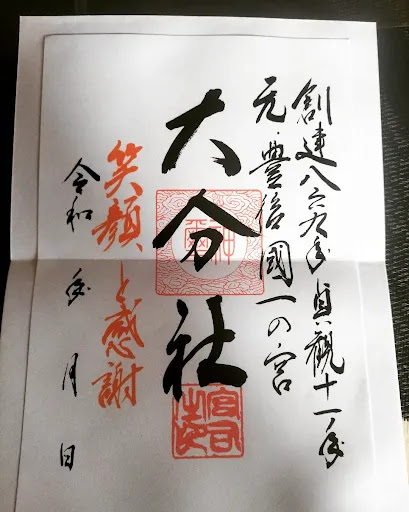 創建八六九年 貞観十一年
元・豊後國一の宮
大分社
笑顔と感謝
令和 年 月 日